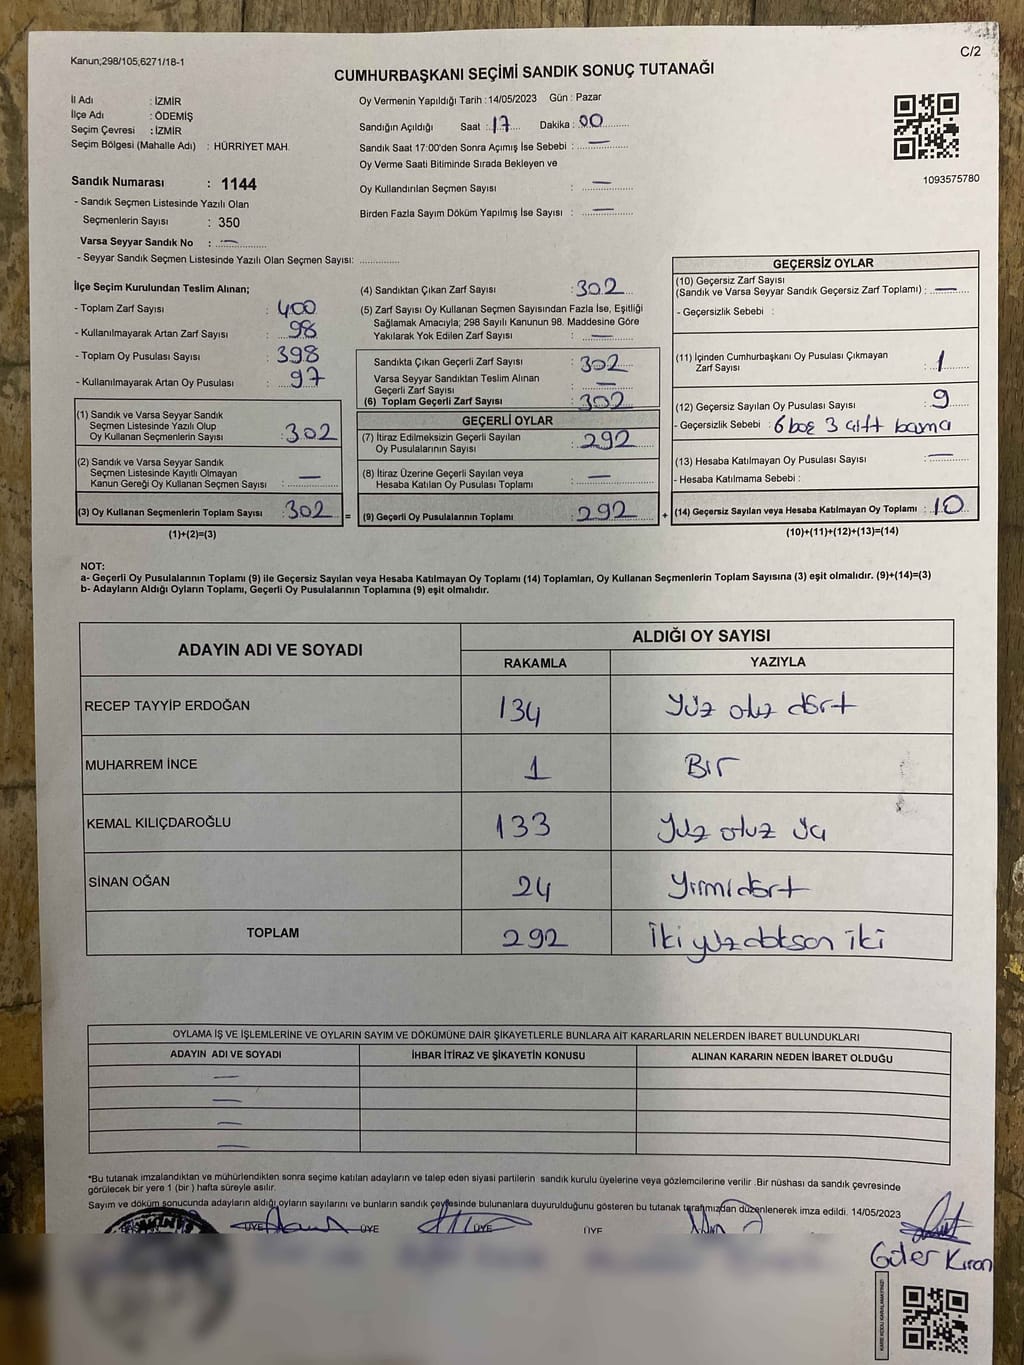 Kanun;298/105,6271/18-1
C/2
CUMHURBAŞKANI SEÇİMİ SANDIK SONUÇ TUTANAĞI
İl Adı : İZMİR
İlçe Adı : ÖDEMİŞ
Seçim Çevresi : İZMİR
Seçim Bölgesi (Mahalle Adı) : HÜRRİYET MAH.
Sandık Numarası : 1144
- Sandık Seçmen Listesinde Yazılı Olan
Seçmenlerin Sayısı : 350
Varsa Seyyar Sandık No : —
- Seyyar Sandık Seçmen Listesinde Yazılı Olan Seçmen Sayısı: ............
Oy Vermenin Yapıldığı Tarih : 14/05/2023 Gün : Pazar
Sandığın Açıldığı Saat : 17 Dakika : 00
Sandık Saat 17:00'den Sonra Açımış İse Sebebi : —
Oy Verme Saati Bitiminde Sırada Bekleyen ve
Oy Kullandırılan Seçmen Sayısı : —
Birden Fazla Sayım Döküm Yapılmış İse Sayısı : —
1093575780
İlçe Seçim Kurulundan Teslim Alınan;
- Toplam Zarf Sayısı : 400
- Kullanılmayarak Artan Zarf Sayısı : 98
- Toplam Oy Pusulası Sayısı : 398
- Kullanılmayarak Artan Oy Pusulası : 97
(1) Sandık ve Varsa Seyyar Sandık
Seçmen Listesinde Yazılı Olup
Oy Kullanan Seçmenlerin Sayısı : 302
(2) Sandık ve Varsa Seyyar Sandık
Seçmen Listesinde Kayıtlı Olmayan
Kanun Gereği Oy Kullanan Seçmen Sayısı : —
(3) Oy Kullanan Seçmenlerin Toplam Sayısı : 302 =
(1)+(2)=(3)
(4) Sandıktan Çıkan Zarf Sayısı : 302
(5) Zarf Sayısı Oy Kullanan Seçmen Sayısından Fazla İse, Eşitliği
Sağlamak Amacıyla; 298 Sayılı Kanunun 98. Maddesine Göre
Yakılarak Yok Edilen Zarf Sayısı : —
Sandıkta Çıkan Geçerli Zarf Sayısı : 302
Varsa Seyyar Sandıktan Teslim Alınan
Geçerli Zarf Sayısı : —
(6) Toplam Geçerli Zarf Sayısı : 302
GEÇERLİ OYLAR
(7) İtiraz Edilmeksizin Geçerli Sayılan
Oy Pusulalarının Sayısı : 292
(8) İtiraz Üzerine Geçerli Sayılan veya
Hesaba Katılan Oy Pusulası Toplamı : —
(9) Geçerli Oy Pusulalarının Toplamı : 292 +
GEÇERSİZ OYLAR
(10) Geçersiz Zarf Sayısı
(Sandık ve Varsa Seyyar Sandık Geçersiz Zarf Toplamı) : —
- Geçersizlik Sebebi :
(11) İçinden Cumhurbaşkanı Oy Pusulası Çıkmayan
Zarf Sayısı : 1
(12) Geçersiz Sayılan Oy Pusulası Sayısı : 9
- Geçersizlik Sebebi : 6 boş 3 çift basma
(13) Hesaba Katılmayan Oy Pusulası Sayısı : —
- Hesaba Katılmama Sebebi :
(14) Geçersiz Sayılan veya Hesaba Katılmayan Oy Toplamı : 10
(10)+(11)+(12)+(13)=(14)
NOT:
a- Geçerli Oy Pusulalarının Toplamı (9) ile Geçersiz Sayılan veya Hesaba Katılmayan Oy Toplamı (14) Toplamları, Oy Kullanan Seçmenlerin Toplam Sayısına (3) eşit olmalıdır. (9)+(14)=(3)
b- Adayların Aldığı Oyların Toplamı, Geçerli Oy Pusulalarının Toplamına (9) eşit olmalıdır.
ADAYIN ADI VE SOYADI ALDIĞI OY SAYISI
RAKAMLA YAZIYLA
RECEP TAYYİP ERDOĞAN 134 Yüz otuz dört
MUHARREM İNCE 1 Bir
KEMAL KILIÇDAROĞLU 133 Yüz otuz üç
SİNAN OĞAN 24 Yirmidört
TOPLAM 292 İki yüz doksan iki
OYLAMA İŞ VE İŞLEMLERİNE VE OYLARIN SAYIM VE DÖKÜMÜNE DAİR ŞİKAYETLERLE BUNLARA AİT KARARLARIN NELERDEN İBARET BULUNDUKLARI
ADAYIN ADI VE SOYADI İHBAR İTİRAZ VE ŞİKAYETİN KONUSU ALINAN KARARIN NEDEN İBARET OLDUĞU
—
—
—
—
*Bu tutanak imzalandıktan ve mühürlendikten sonra seçime katılan adayların ve talep eden siyasi partilerin sandık kurulu üyelerine veya gözlemcilerine verilir .Bir nüshası da sandık çevresinde
görülecek bir yere 1 (bir ) hafta süreyle asılır.
Sayım ve döküm sonucunda adayların aldığı oyların sayılarını ve bunların sandık çevresinde bulunanlara duyurulduğunu gösteren bu tutanak tarafımızdan düzenlenerek imza edildi. 14/05/2023
BAŞKAN ÜYE ÜYE ÜYE ÜYE
Güler Kıran